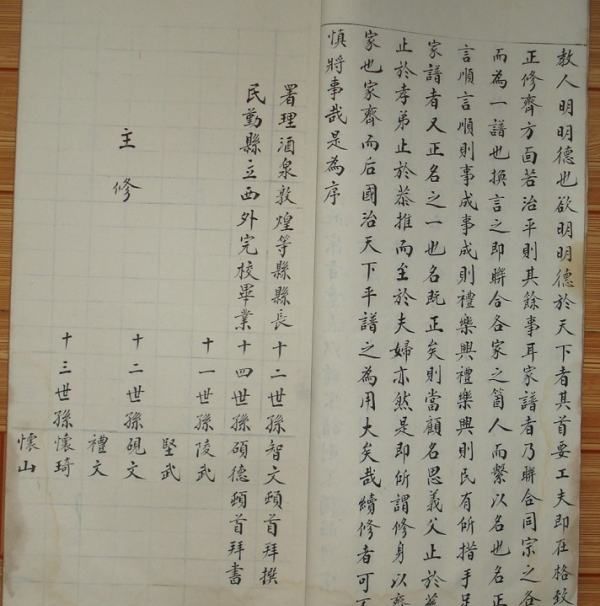 教人明明德也欲明明德於天下者其首要工夫即在格致
正修齊方面若治平則其餘事耳家譜者乃聯合同宗之各
而為一譜也換言之即聯合各家之箇人而繫以名也名正
言順言順則事成事成則禮樂興禮樂興則民有所措手足
家譜者又正名之一也名既正矣則當顧名思義父止於慈
止於孝弟止於恭推而至於夫婦亦然是即所謂修身以齊
家也家齊而后國治天下平譜之為用大矣哉續修者可不
慎將事哉是為序
署理酒泉敦煌等縣縣長十二世孫智文頓首拜撰
民勤縣立西外完校畢業十四世孫碩德頓首拜書
十一世孫陵武
堅武
主修 十二世孫硯文
禮文
十三世孫懷琦
懷山